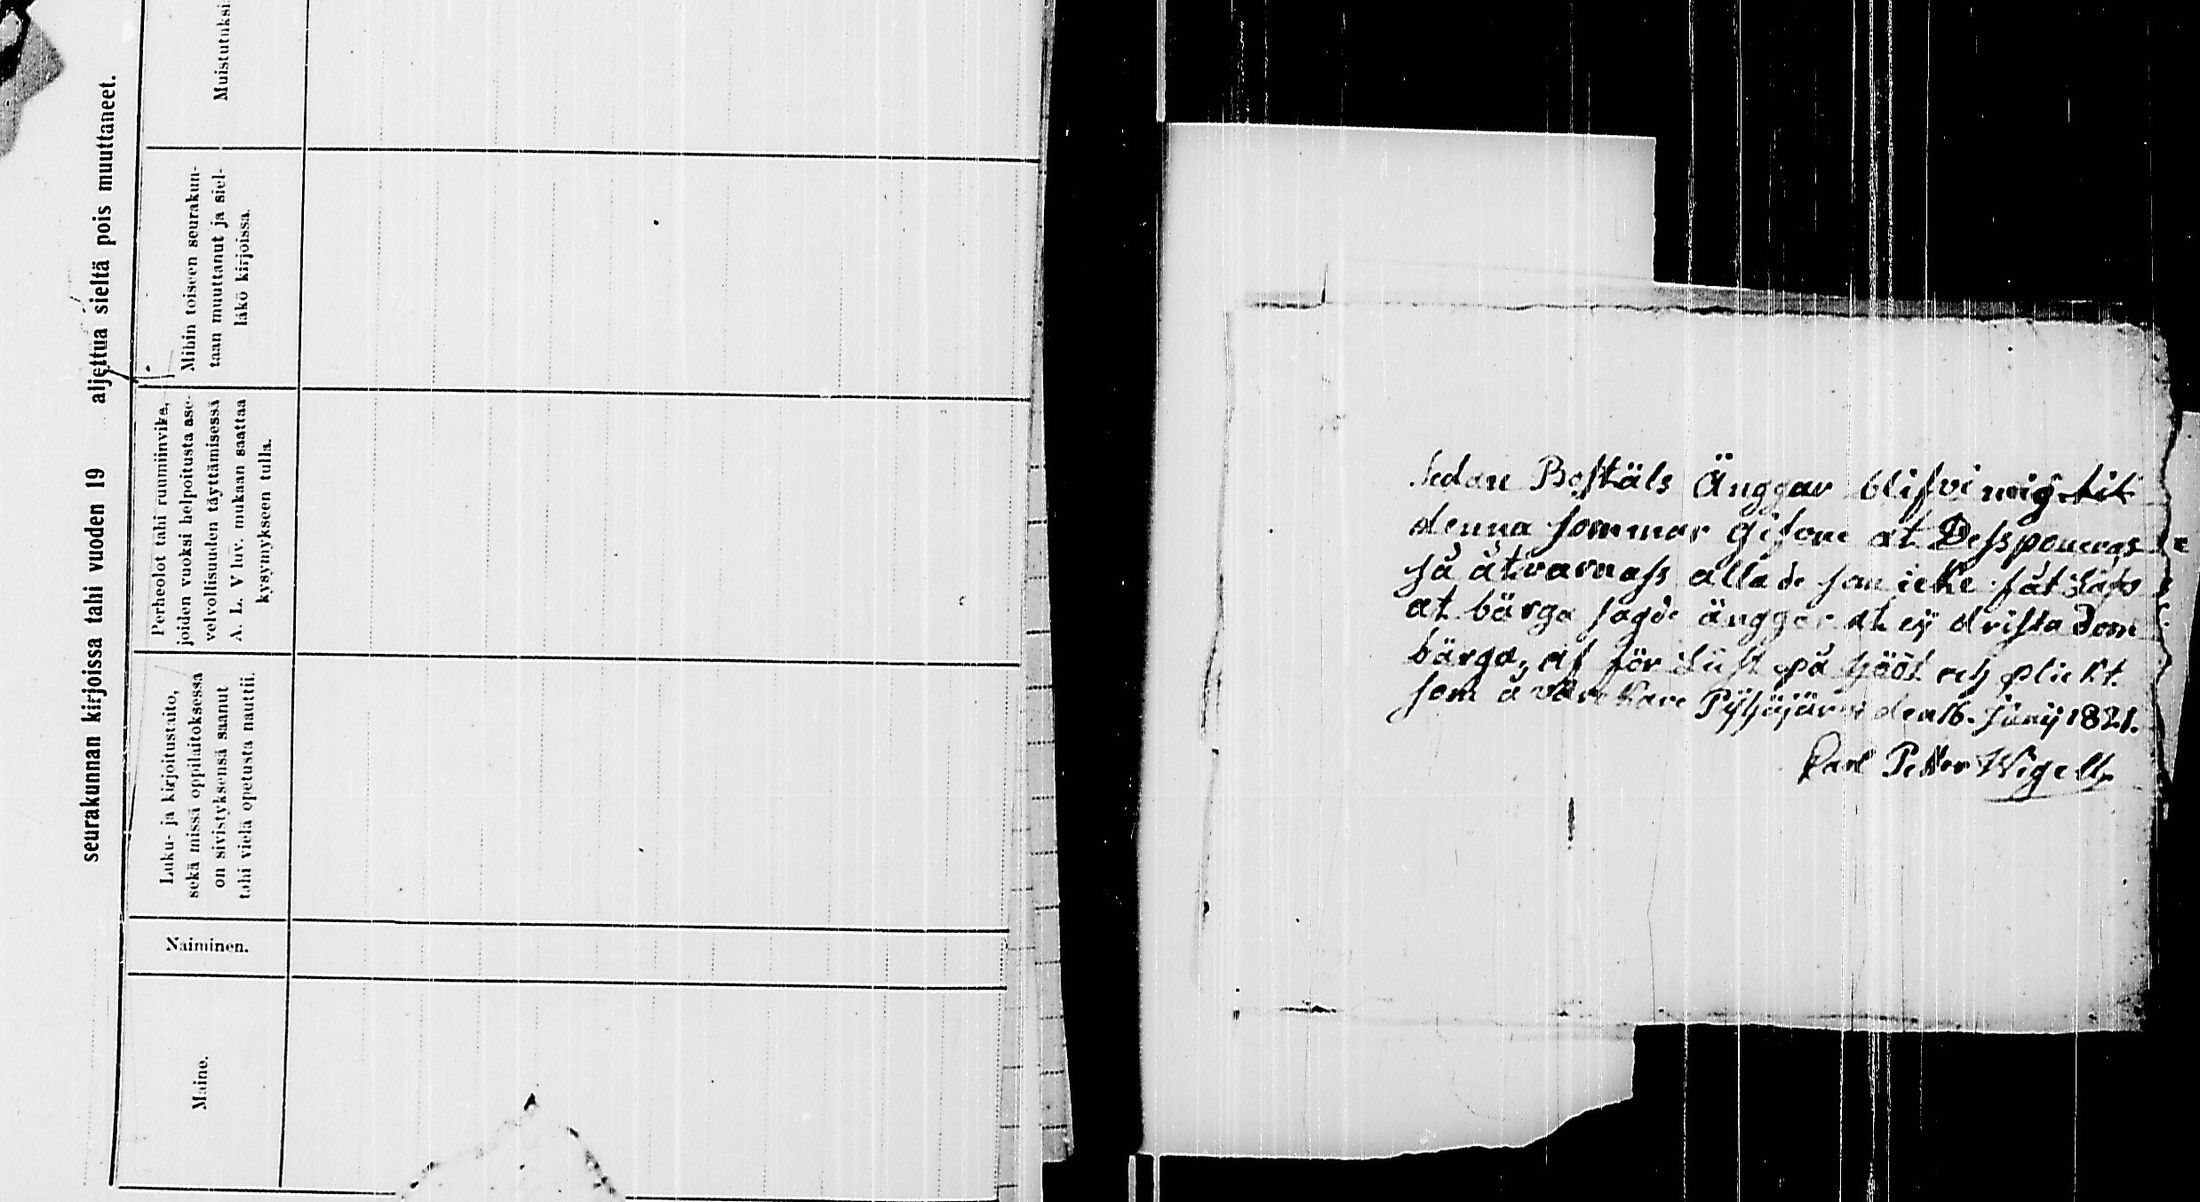 seurakunnan kirjoissa tahi vuoden 19 aljettua sieltä pois muuttaneet.
Maine.
Naiminen.
Luku- ja kirjoitustaito,
sekä missä oppilaitoksessa
on sivistyksensä saanut
tahi vielä opetusta nauttii.
Perheolot tahi ruumiinvika,
joiden vuoksi helpoitusta ase-
velvollisuuden täyttämisessä
A. L. V luv. mukaan saattaa
kysymykseen tulla.
Mihin toiseen seurakun-
taan muuttanut ja siel-
läkö kirjoissa.
Muistutuksi
Sedan Boställs Änggar blifvi
denna sommar at
så åtvarnass alla de som icke fåt
at bärga sagde änggar at ej drista dom
bärga, vid för Lust på och plickt
som Pyhäjärvi den 16. Junij 1821.
Carl Petter Wigell